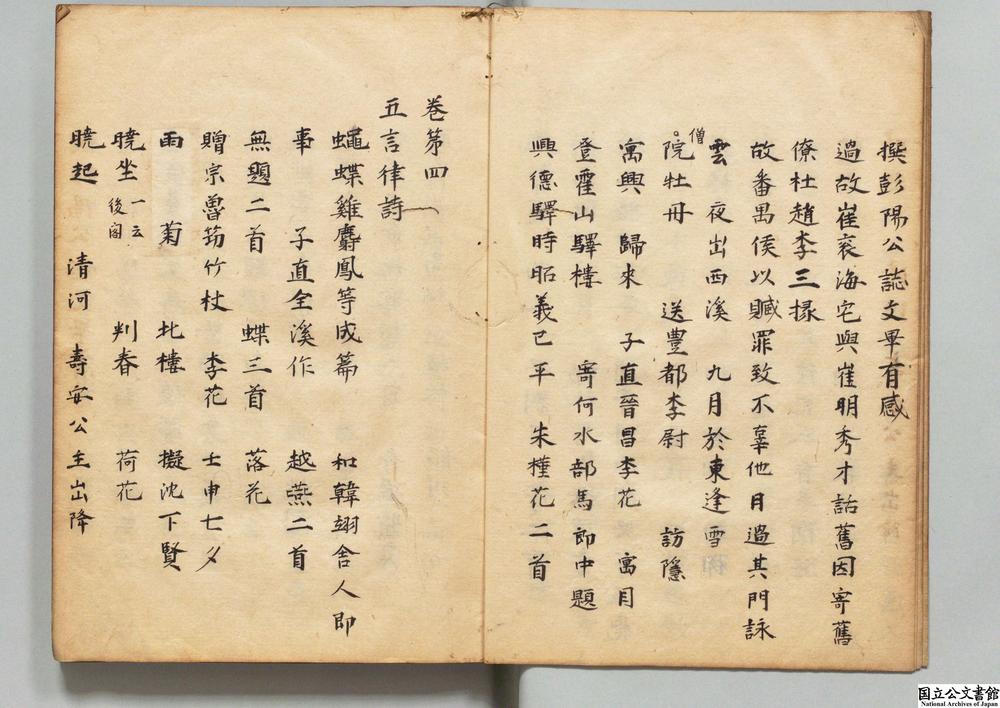 撰彭陽公誌文畢有感
過故崔兖海宅與崔明秀才話舊因寄舊
僚杜趙李三掾
故番禺侯以贓罪致不辜他日過其門詠
雲 夜出西溪 九月於東逢雪
僧
院牡丹 送豊都李尉 訪隱
寓興 歸來 子直晉昌李花 寓目
登霍山驛樓 寄何水部馬郎中題
興德驛時昭義已平 朱槿花二首
卷第四
五言律詩
蠅蝶雞麝鳳等成篇 和韓翃舍人即
事 子直全溪作 越燕二首
無題二首 蝶三首 落花
贈宗魯筇竹杖 李花 士申七夕
雨 菊 北樓 擬沈下賢
曉坐 一云後閣 判春 荷花
曉起 清河 壽安公主出降
国立公文書館
National Archives of Japan